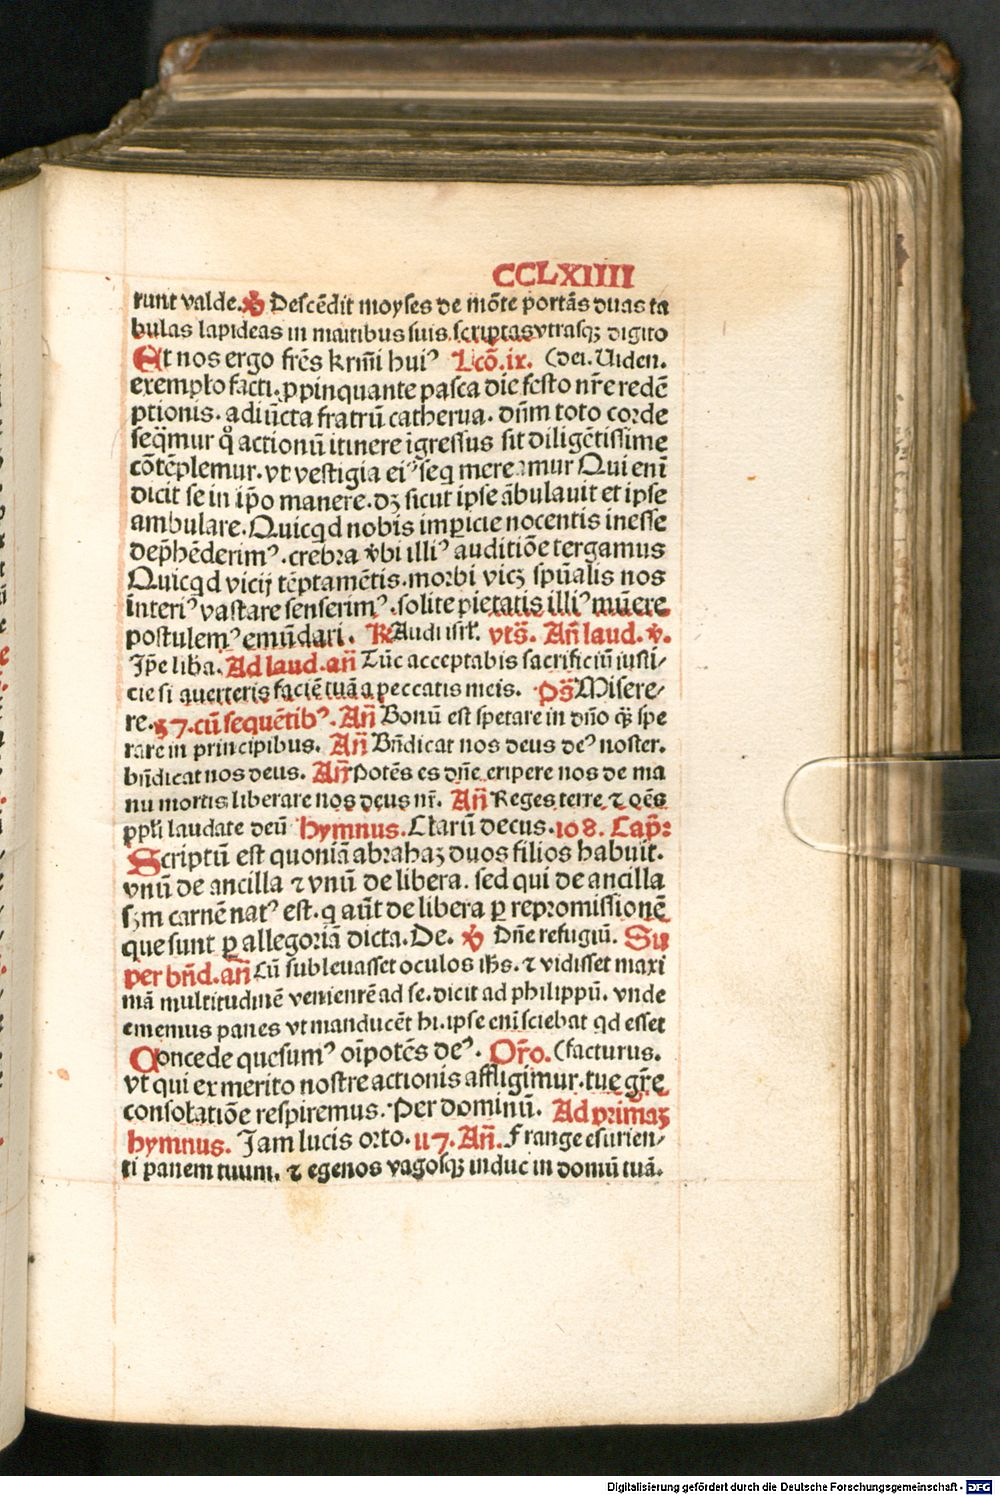 CCLXIIII
runt valde. ℣ Descēdit moyses de mōte portās duas ta
bulas lapideas in manibus suis scriptas vtrasqꝫ digito
Et nos ergo frēs krm̄i huiꝰ Lcō.ix. (dei. Uiden.
exemplo facti. ꝓpinquante pasca die festo nr̄e redē
ptionis. adiūcta fratrū catherua. dn̄m toto corde
seq̄mur q̊ actionū itinere īgressus sit diligētissime
cōtēplemur. vt vestigia eiꝰ seq mereamur Qui enī
dicit se in ip̄o manere. dꝫ sicut ipse ābulauit et ipse
ambulare. Quicqd nobis imꝑicie nocentis inesse
dep̄hēderimꝰ. crebra v̄bi illiꝰ auditiōe tergamus
Quicqd vicij tēptamētis. morbi vicꝫ spūalis nos
īnteriꝰ vastare senserimꝰ. solite pietatis illiꝰ mūere
postulemꝰ emūdari. ℟ Audi isrl̄. vts̄. An̄ laud. ℣.
Ip̄e liba. Ad laud. an̄ Tūc acceptabis sacrificiū iusti/
cie si auerteris faciē tuā a peccatis meis. ps̄ Misere/
re. 57. cū sequētibꝰ. An̄ Bonū est sperare in dn̄o q̄ꝫ spe
rare in principibus. An̄ Bn̄dicat nos deus deꝰ noster.
bn̄dicat nos deus. An̄ Potēs es dn̄e eripere nos de ma
nu mortis liberare nos deus nr̄. An̄ Reges terre ⁊ oēs
ppl̄i laudate deū hymnus. Clarū decus. 108. Cap̄:
Scriptū est quoniā abrahaꝫ duos filios habuit.
vnū de ancilla ⁊ vnū de libera. sed qui de ancilla
sꝫm carnē natꝰ est. q aūt de libera ꝑ repromissionē
que sunt ꝑ allegoriā dicta. De. ℣ Dn̄e refugiū. Su
per bn̄d. an̄ Cū subleuasset oculos ih̄s. ⁊ vidisset maxi
mā multitudinē venientē ad se. dicit ad philippū. vnde
ememus panes vt manducēt hi. ipse enī sciebat qd esset
Concede quesumꝰ oīpotēs deꝰ. Or̄o. (facturus.
vt qui ex merito nostre actionis affligimur. tue gr̄e
consolatiōe respiremus. Per dominū. Ad primaꝫ
hymnus. Iam lucis orto. 117. An̄. Frange esurien/
ti panem tuum. ⁊ egenos vagosqꝫ induc in domū tuā.
Digitalisierung gefördert durch die Deutsche Forschungsgemeinschaft - DFG